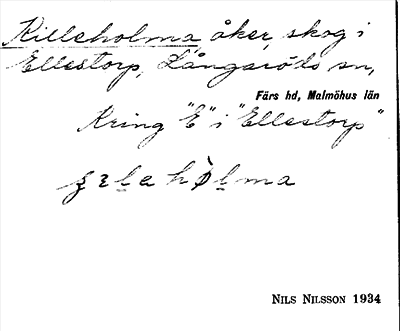 Killeholma åker, skog i
Ellestorp, Långaröds sn,
Färs hd, Malmöhus län
Kring "E" i "Ellestorp"
NILS NILSSON 1934